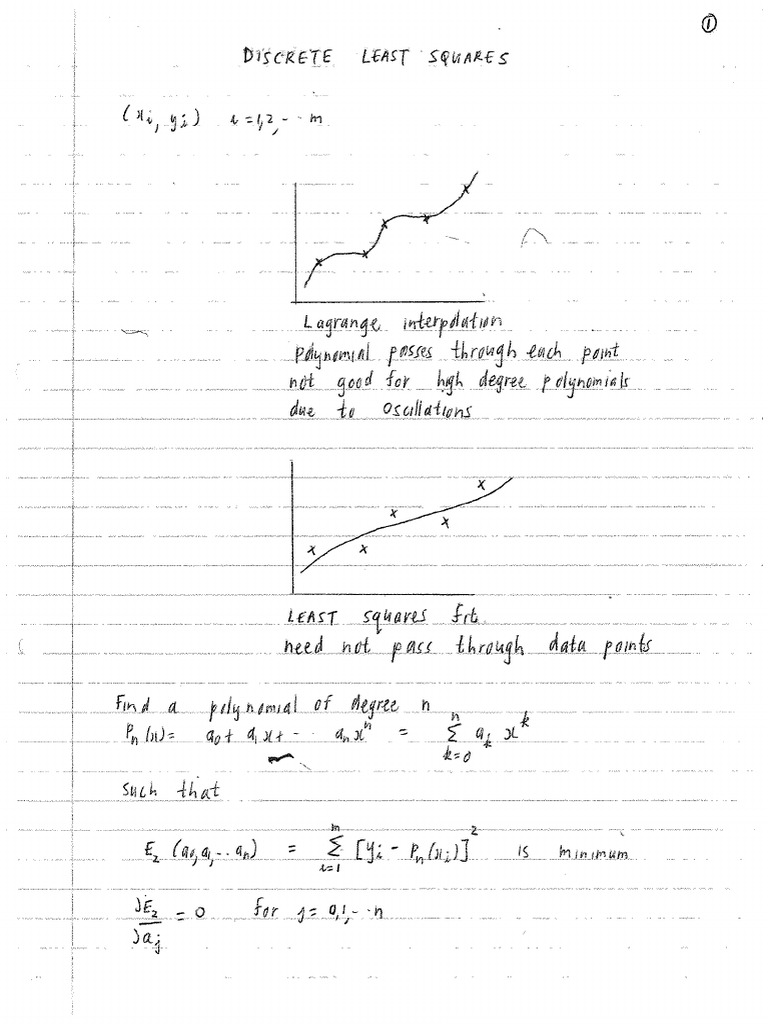 ①
DISCRETE LEAST SQUARES
(xi, yi) i = 1,2,-·· m
Lagrange interpolation
polynomial passes through each point
not good for high degree polynomials
due to oscillations
LEAST squares fit
need not pass through data points
Find a polynomial of degree n
Pn(x) = a0 + a1x + -·· anx^n = Σ_{k=0}^{n} ak x^k
such that
E2 (a0, a1, -·· an) = Σ_{i=1}^{m} [yi - Pn(xi)]^2 is minimum
∂E2/∂aj = 0 for j = 0,1,-··n